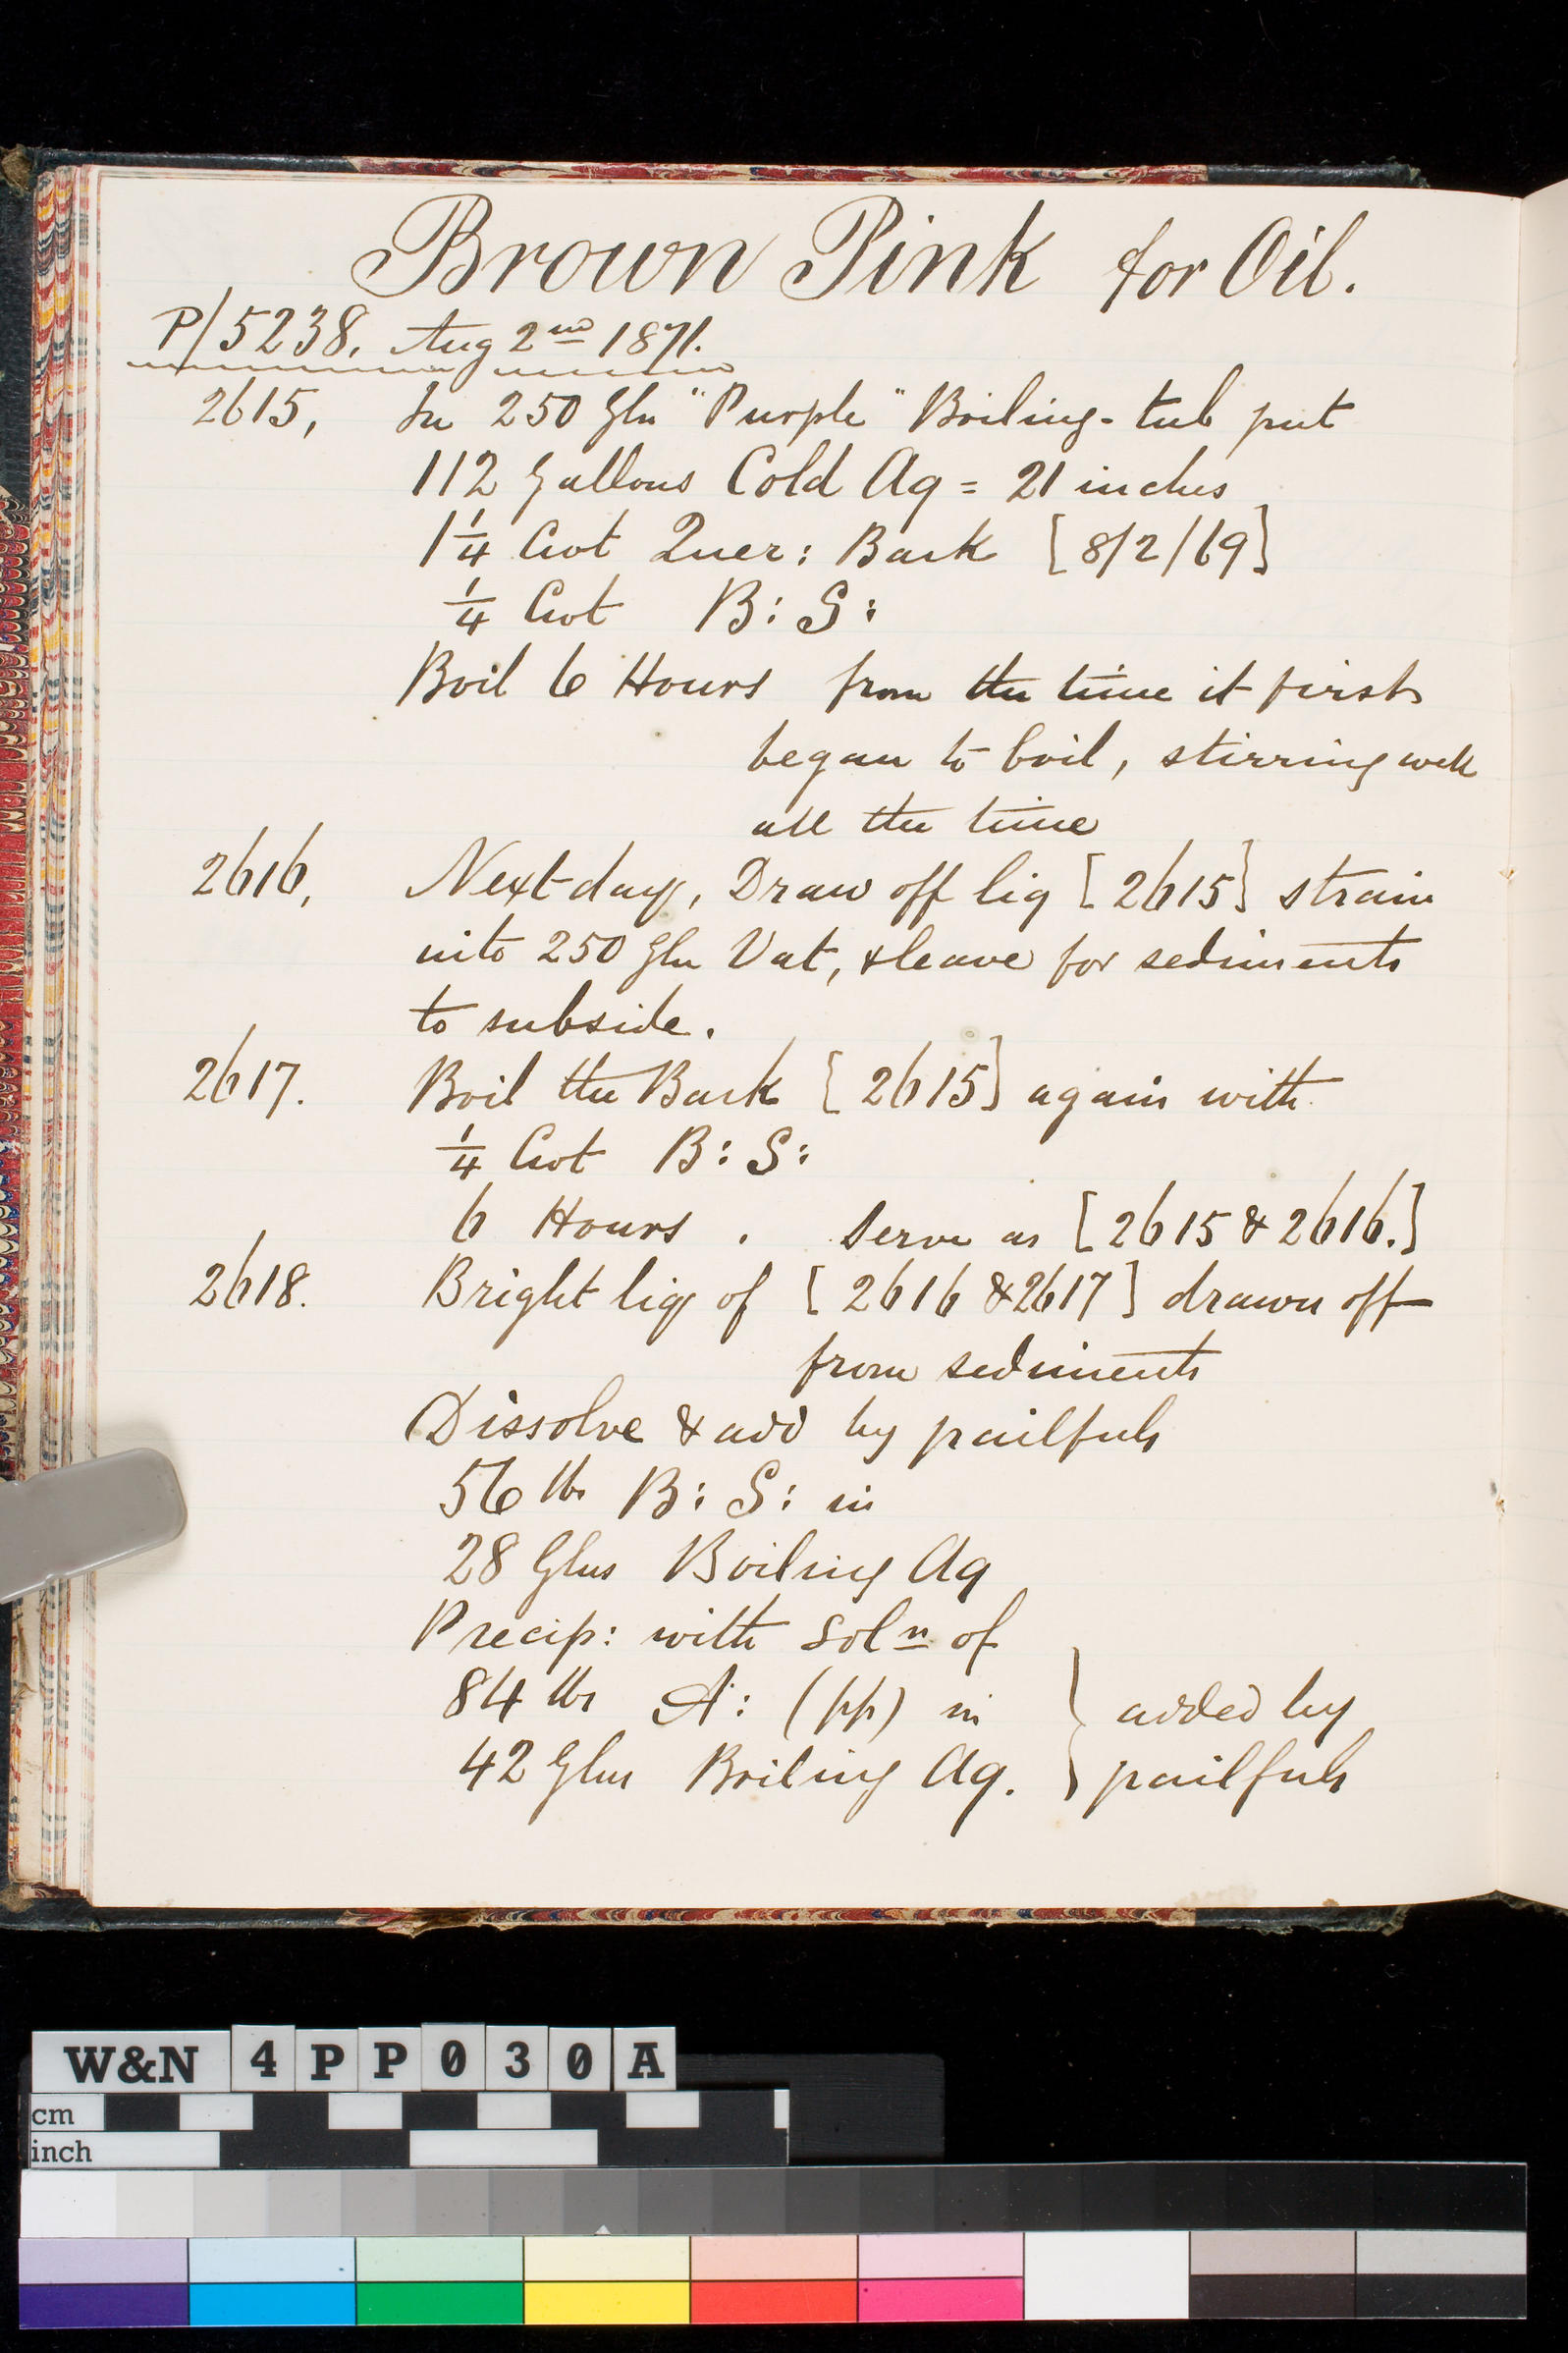 Brown Pink for Oil.
P/5238. Aug 2nd 1871.
2615, In 250 Gln "Purple" Boiling-tub put
112 Gallons Cold Aq = 21 inches
1 1/4 Cwt Quer: Bark [8/2/69]
1/4 Cwt B: S:
Boil 6 Hours from the time it first
began to boil, stirring well
all the time
2616, Next day, Draw off liq [2615] strain
into 250 Gln Vat, & leave for sediments
to subside.
2617. Boil the Bark [2615] again with
1/4 Cwt B: S:
6 Hours . Serve as [2615 & 2616.]
2618. Bright liq of [2616 & 2617] drawn off
from sediments
Dissolve & add by pailfuls
56 lbs B: S: in
28 Glns Boiling Aq
Precip: with Soln of
84 lbs A: (pp) in } added by
42 Glns Boiling Aq. } pailfuls
W&N 4PP030A
cm
inch